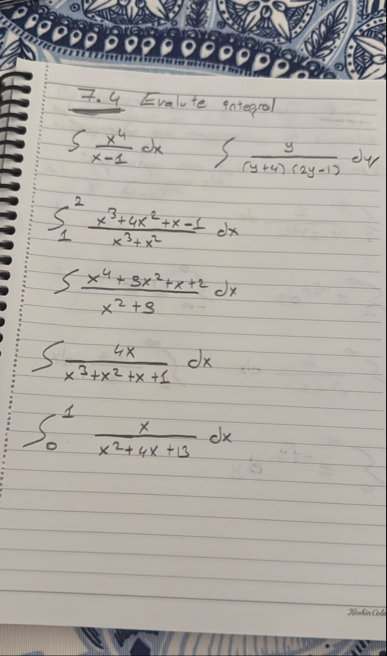 7.4 Evalute integral
∫ x⁴/(x-1) dx   ∫ y/((y+4)(2y-1)) dy
∫₁² (x³+4x²+x-1)/(x³+x²) dx
∫ (x⁴+3x²+x+2)/(x²+3) dx
∫ 4x/(x³+x²+x+1) dx
∫₀¹ x/(x²+4x+13) dx